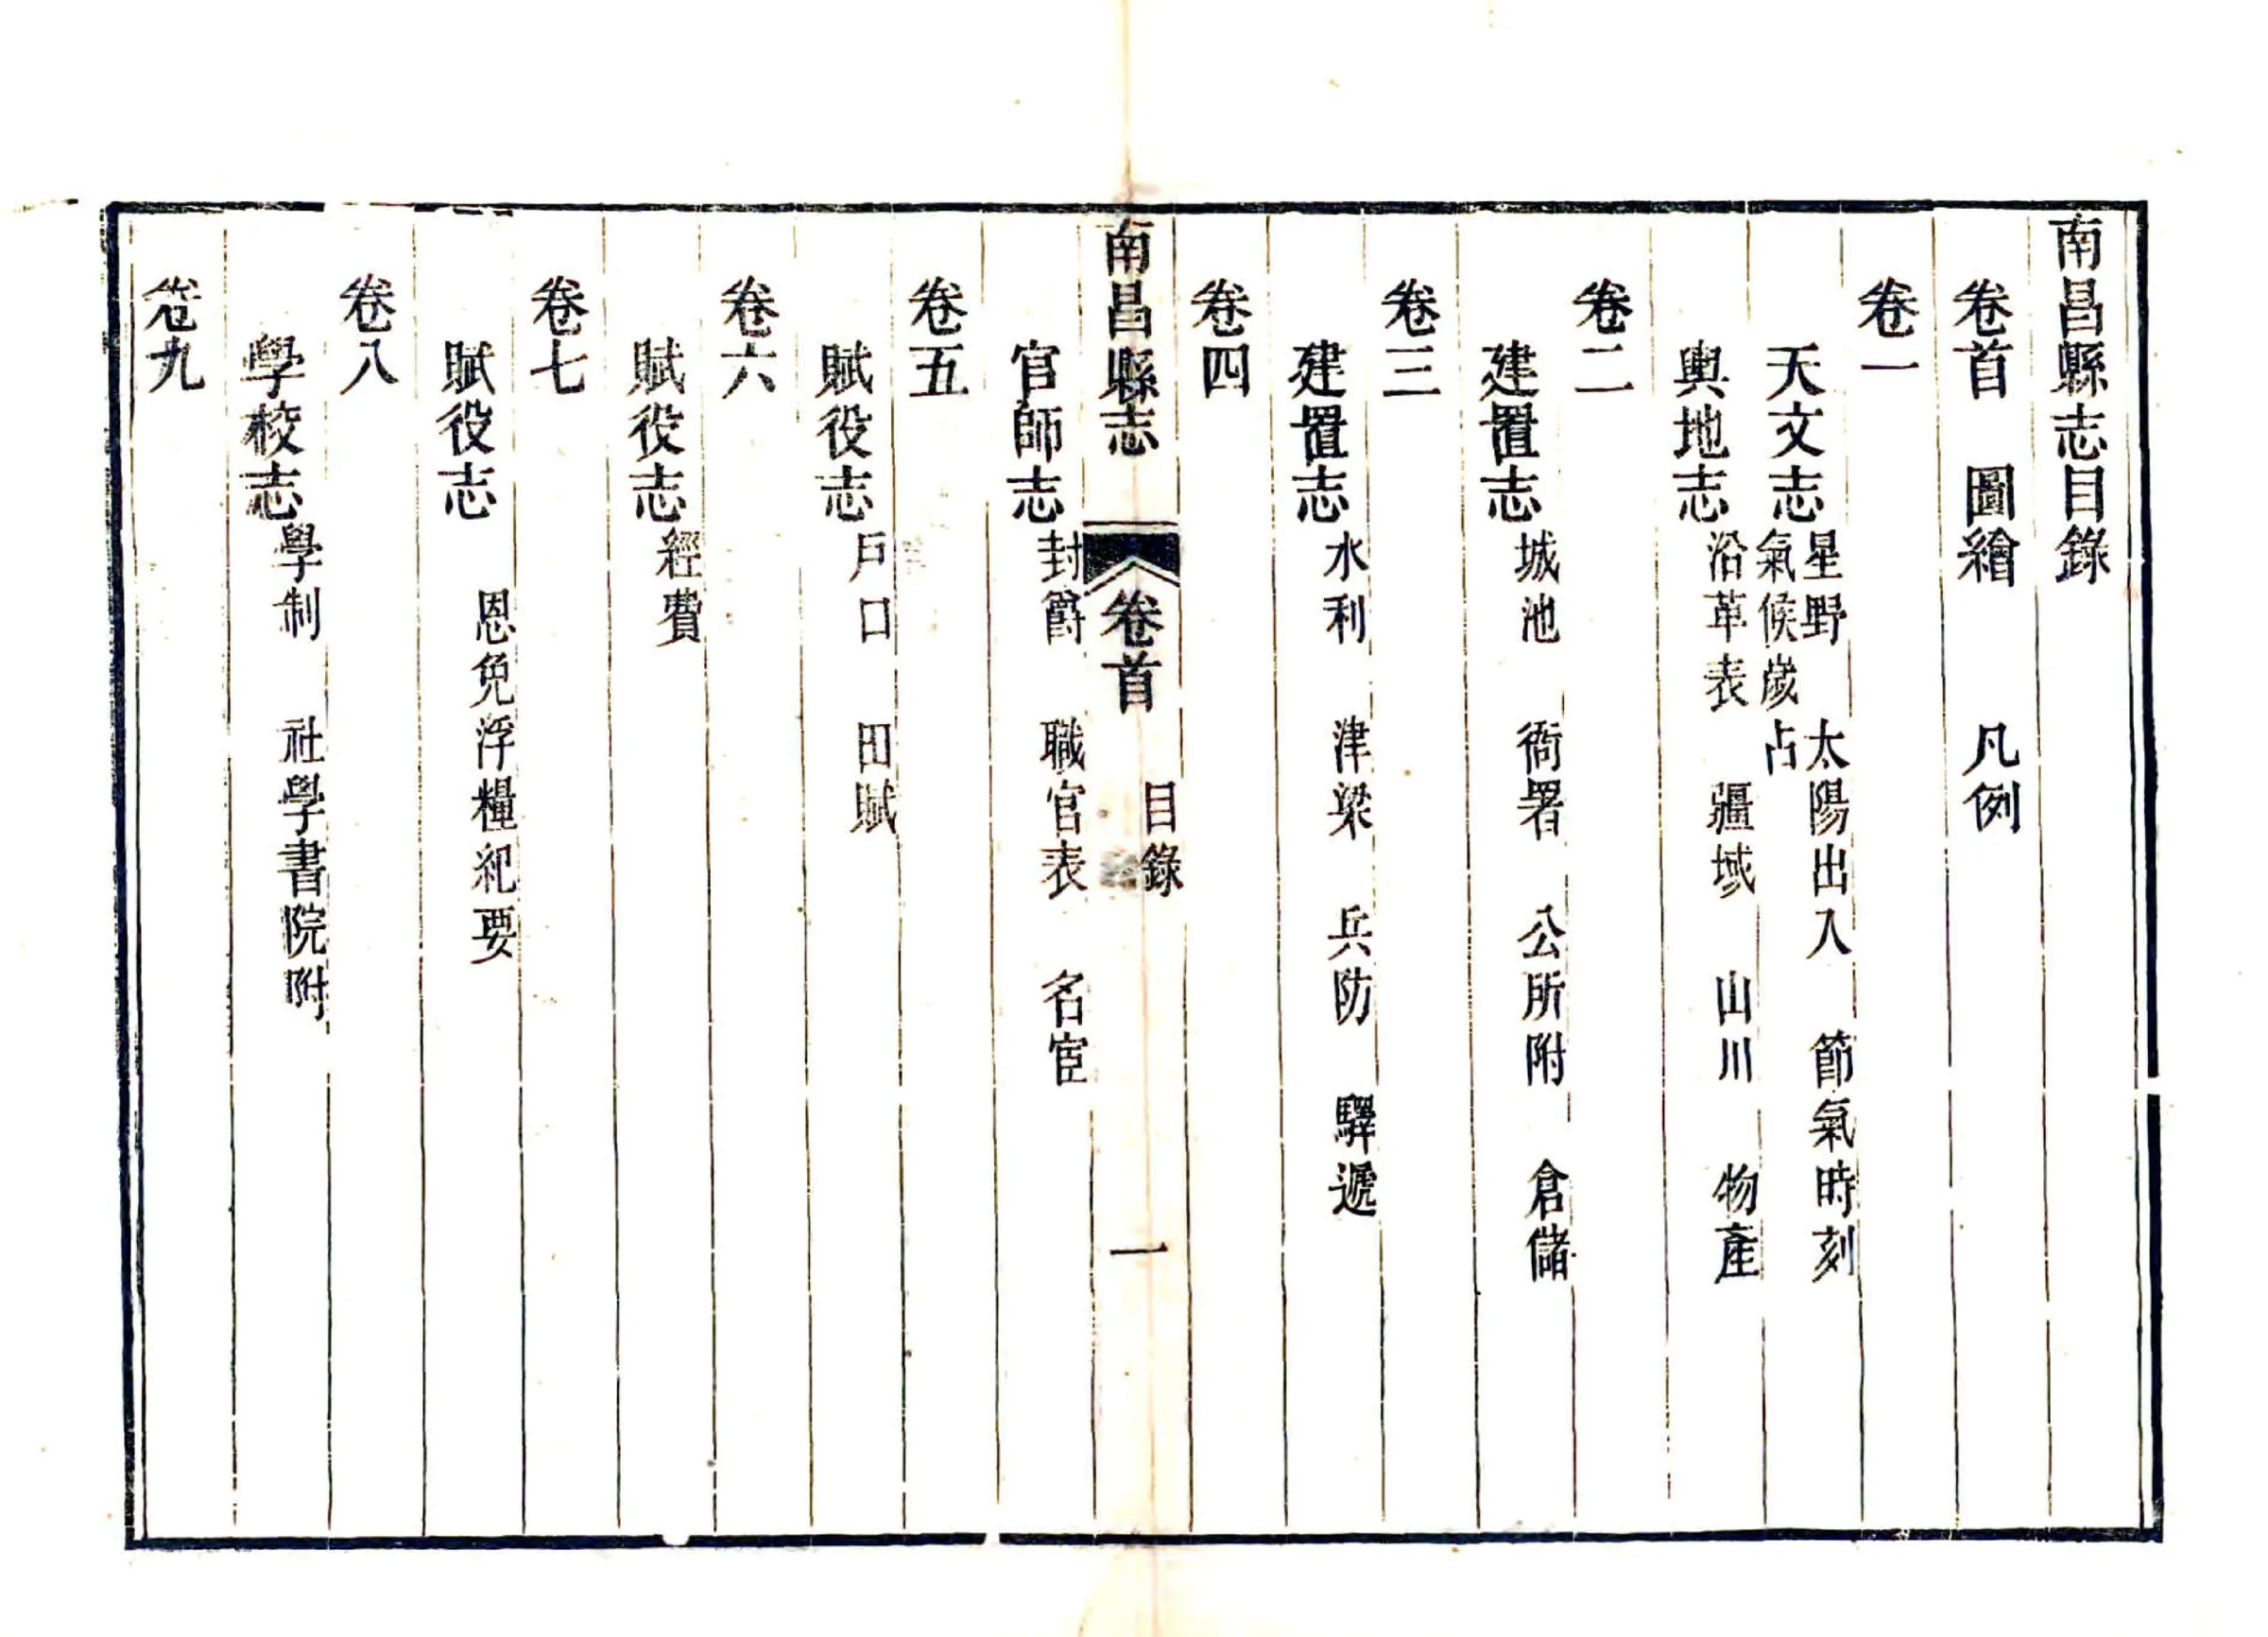 南昌縣志目錄
卷首　圖繪　凡例
卷一
天文志　星野　太陽出入　節氣時刻
氣候歲占
輿地志　沿革表　疆域　山川　物產
卷二
建置志　城池　衙署　公所附　倉儲
卷三
建置志　水利　津梁　兵防　驛遞
卷四
南昌縣志　卷首　目錄　一
官師志　封爵　職官表　名宦
卷五
賦役志　戶口　田賦
卷六
賦役志　經費
卷七
賦役志　恩免浮糧紀要
卷八
學校志　學制　社學書院附
卷九